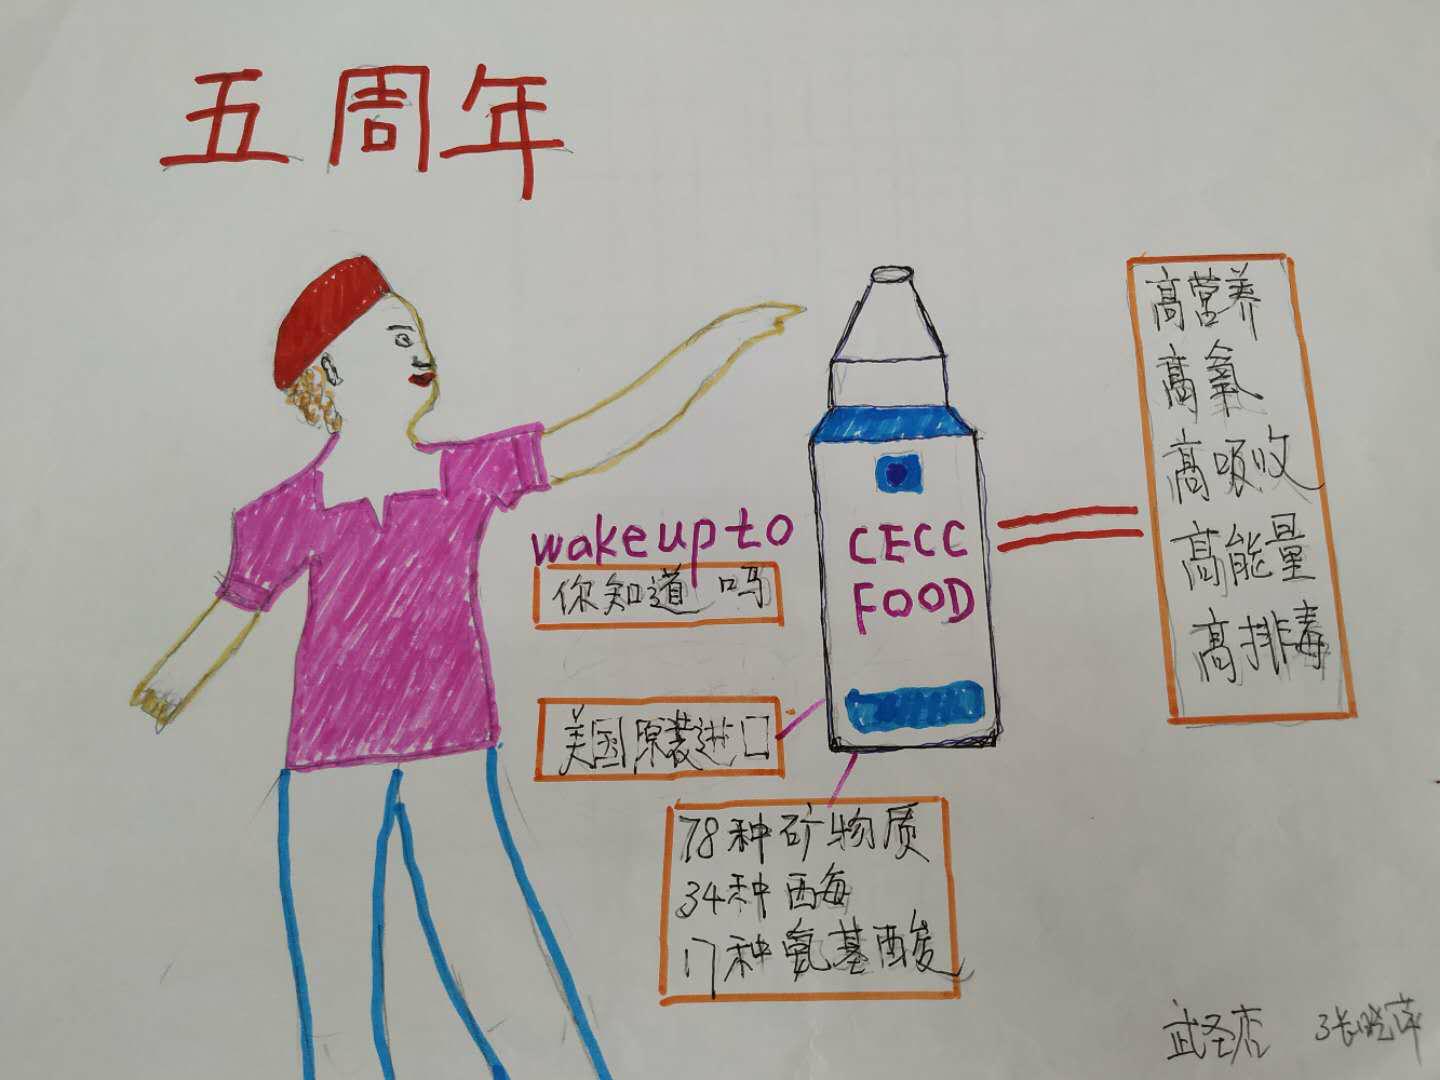 五周年
wake up to
你知道吗
CECC
FOOD
美国原装进口
78种矿物质
34种酶
17种氨基酸
高营养
高氧
高吸收
高能量
高排毒
武圣店 张晓萍